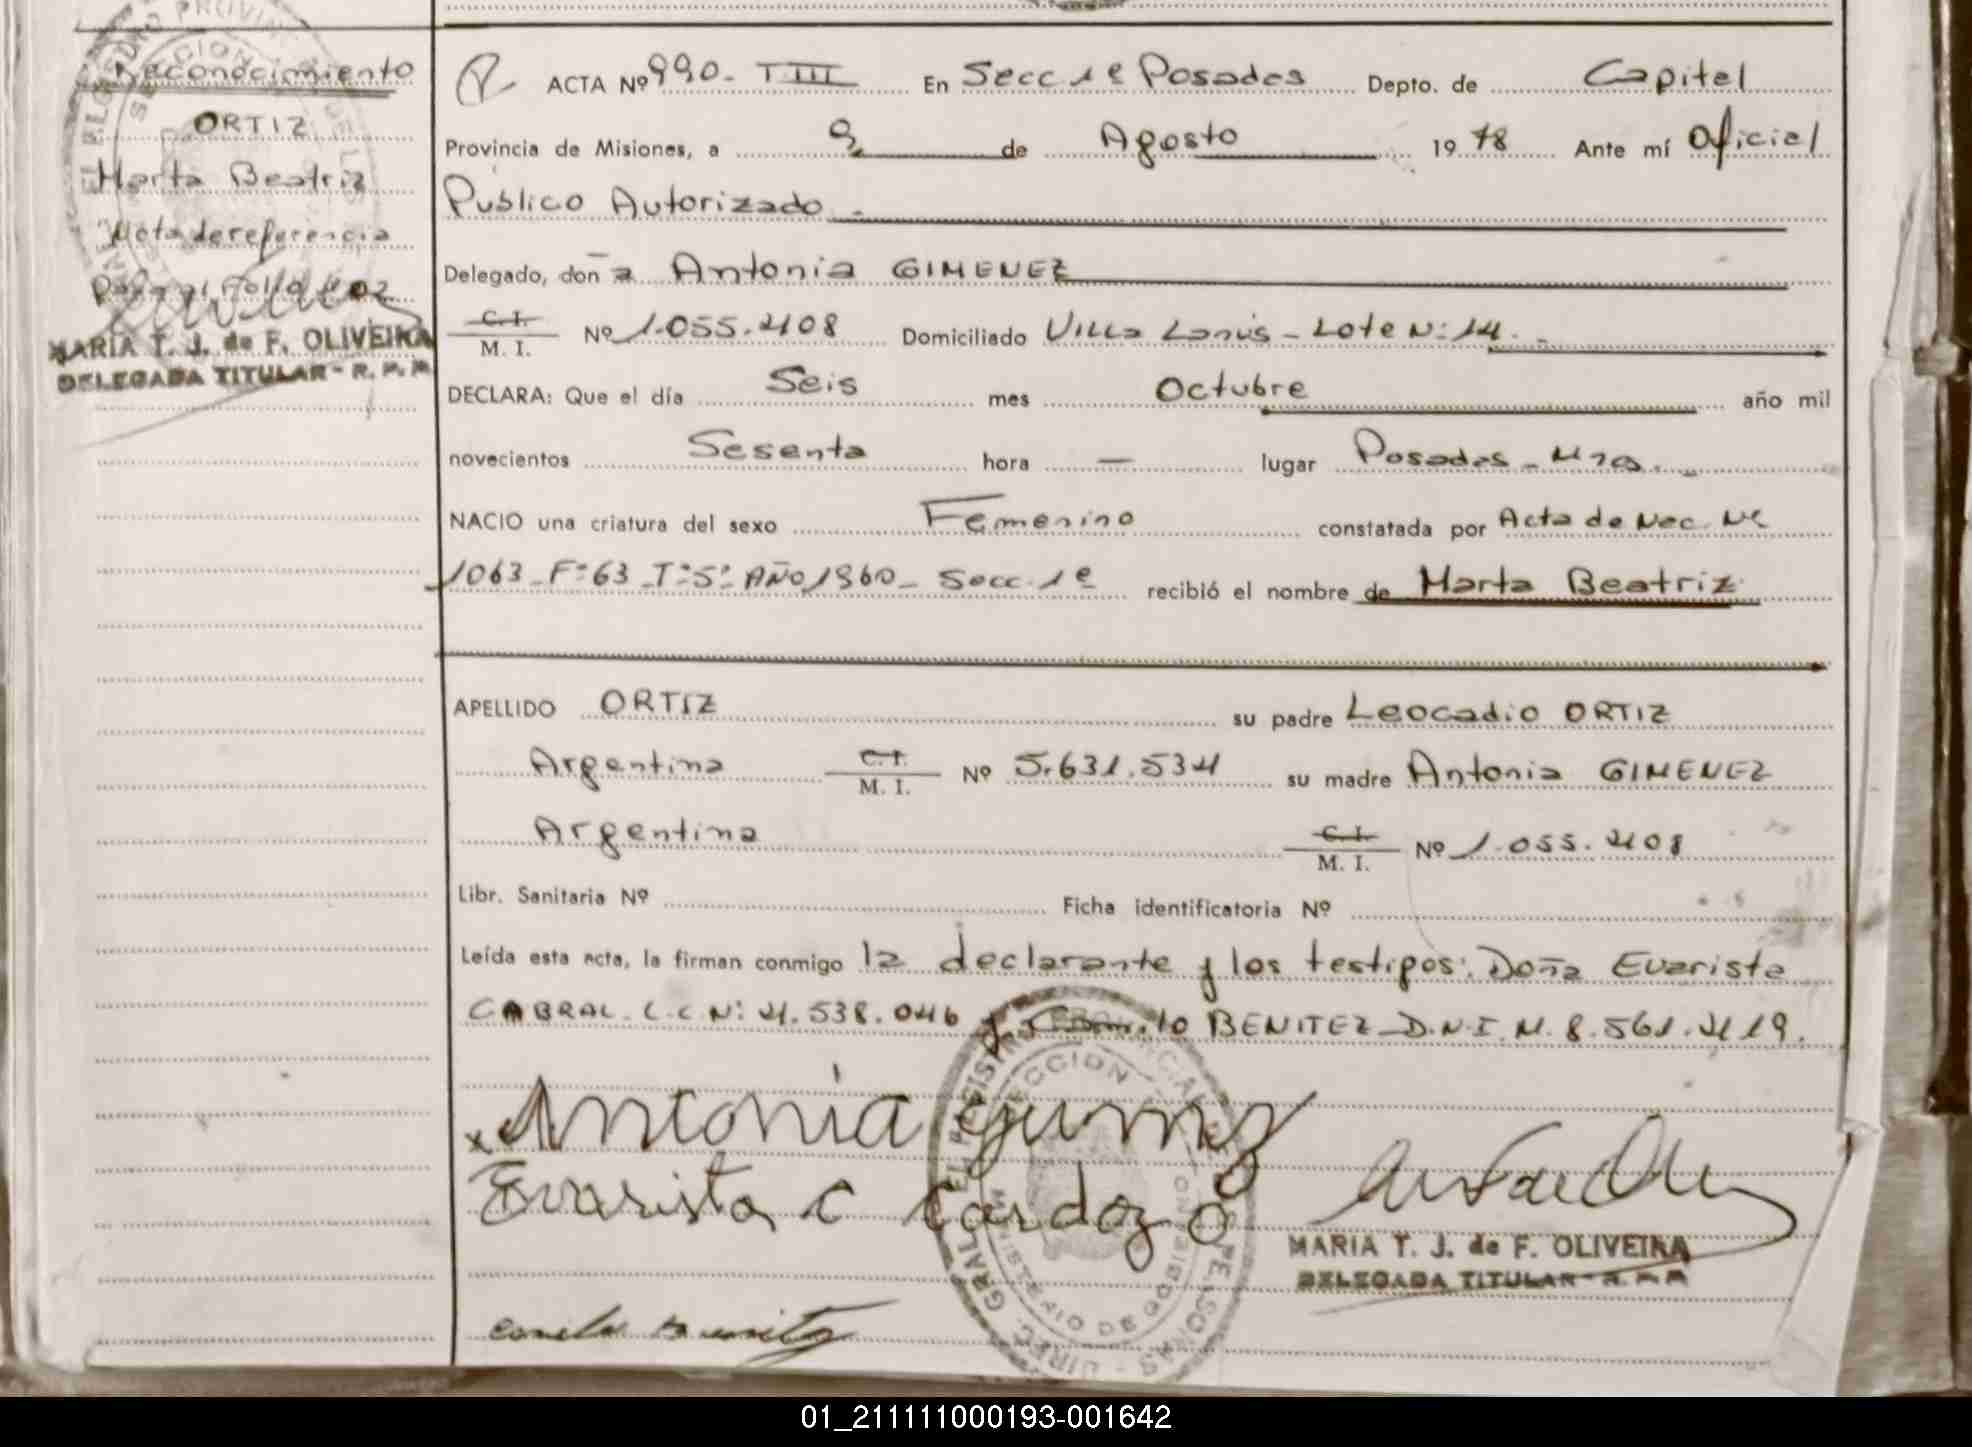 Reconocimiento
ORTIZ
Marta Beatriz
"Nota de referencia
MARIA T. J. de F. OLIVEIRA
DELEGADA TITULAR - R. P. P.
ACTA Nº 990 - T III En Secc 1ª Posadas Depto. de Capital
Provincia de Misiones, a 9 de Agosto 1978 Ante mí Oficial
Publico Autorizado -
Delegado, don a Antonia GIMENEZ
C. I. / M. I. Nº 1.055.408 Domiciliado Villa Lanús - Lote Nº: 14. -
DECLARA: Que el día Seis mes Octubre año mil
novecientos Sesenta hora — lugar Posadas - Mnes. -
NACIO una criatura del sexo Femenino constatada por Acta de Nac. Nº
1063 - Fº 63 - Tº 5º - AÑO 1960 - Secc. 1ª recibió el nombre de Marta Beatriz
APELLIDO ORTIZ su padre Leocadio ORTIZ
Argentina C. I. / M. I. Nº 5.631.534 su madre Antonia GIMENEZ
Argentina C. I. / M. I. Nº 1.055.408
Libr. Sanitaria Nº Ficha identificatoria Nº
Leída esta acta, la firman conmigo la declarante y los testigos: Doña Evarista
CABRAL - L.C. Nº: 4.538.046 y BENITEZ - D.N.I. M. 8.561.419.
x Antonia Gimenez
Evarista C Cardozo
MARIA T. J. de F. OLIVEIRA
DELEGADA TITULAR - R. P. P.
01_211111000193-001642